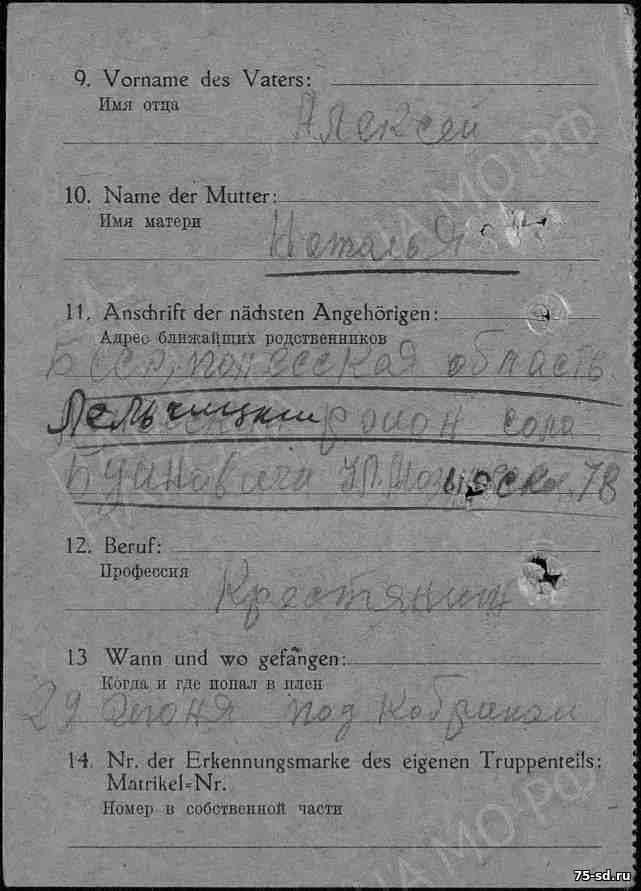 9. Vorname des Vaters:
Имя отца
Алексей
10. Name der Mutter:
Имя матери
Наталья
11. Anschrift der nächsten Angehörigen:
Адрес ближайших родственников
БССР, Полесская область
Лельчицкий район соло
Буйновичи 78
12. Beruf:
Профессия
Крестянин
13 Wann und wo gefangen:
Когда и где попал в плен
29 июня под Кобрином
14. Nr. der Erkennungsmarke des eigenen Truppenteils:
Matrikel=Nr.
Номер в собственной части
ЦА МО РФ
75-sd.ru